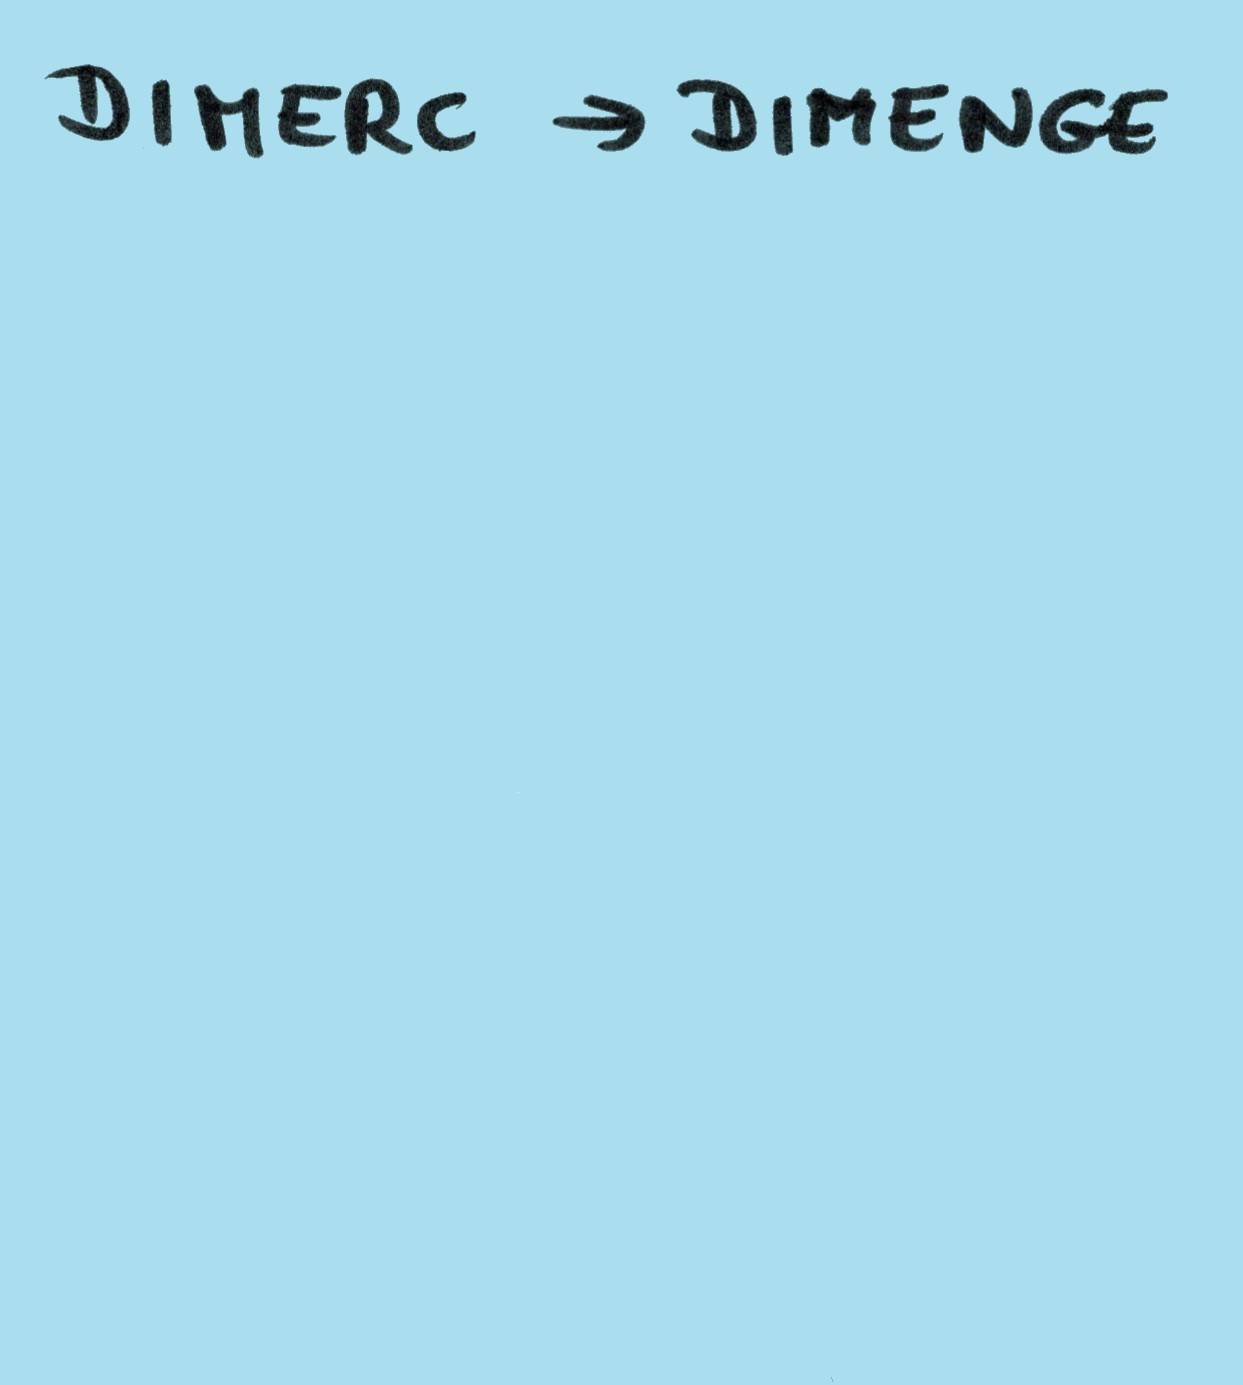 DIMERC → DIMENGE